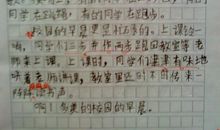 同学在跳绳，有的同学在跑步。
校园的早晨更是热闹的。上课铃一
响，同学们三三两两作伴走跟回教室等老
师来上课。上课时，同学们津津有味地
听着老师讲课，教室里还时不时传来一
阵阵读书声。
啊！多美的校园的早晨。